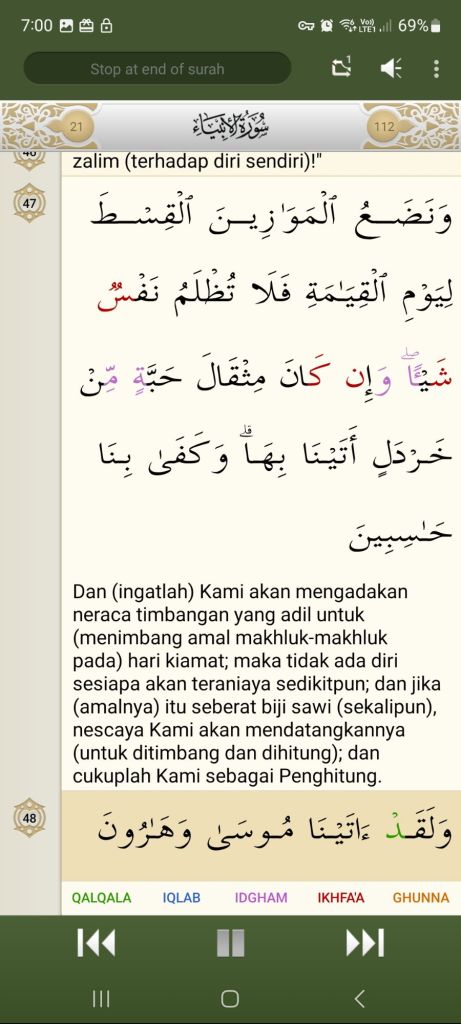 7:00
Voo)
LTE1
69%
Stop at end of surah
1
21
سُورَةُ الأَنبِيَاء
112
46
zalim (terhadap diri sendiri)!"
47
وَنَضَعُ ٱلْمَوَٰزِينَ ٱلْقِسْطَ
لِيَوْمِ ٱلْقِيَـٰمَةِ فَلَا تُظْلَمُ نَفْسٌ
شَيْـًٔا ۖ وَإِن كَانَ مِثْقَالَ حَبَّةٍ مِّنْ
خَرْدَلٍ أَتَيْنَا بِهَا ۗ وَكَفَىٰ بِنَا
حَـٰسِبِينَ
Dan (ingatlah) Kami akan mengadakan
neraca timbangan yang adil untuk
(menimbang amal makhluk-makhluk
pada) hari kiamat; maka tidak ada diri
sesiapa akan teraniaya sedikitpun; dan jika
(amalnya) itu seberat biji sawi (sekalipun),
nescaya Kami akan mendatangkannya
(untuk ditimbang dan dihitung); dan
cukuplah Kami sebagai Penghitung.
48
وَلَقَدْ ءَاتَيْنَا مُوسَىٰ وَهَـٰرُونَ
QALQALA IQLAB IDGHAM IKHFA'A GHUNNA